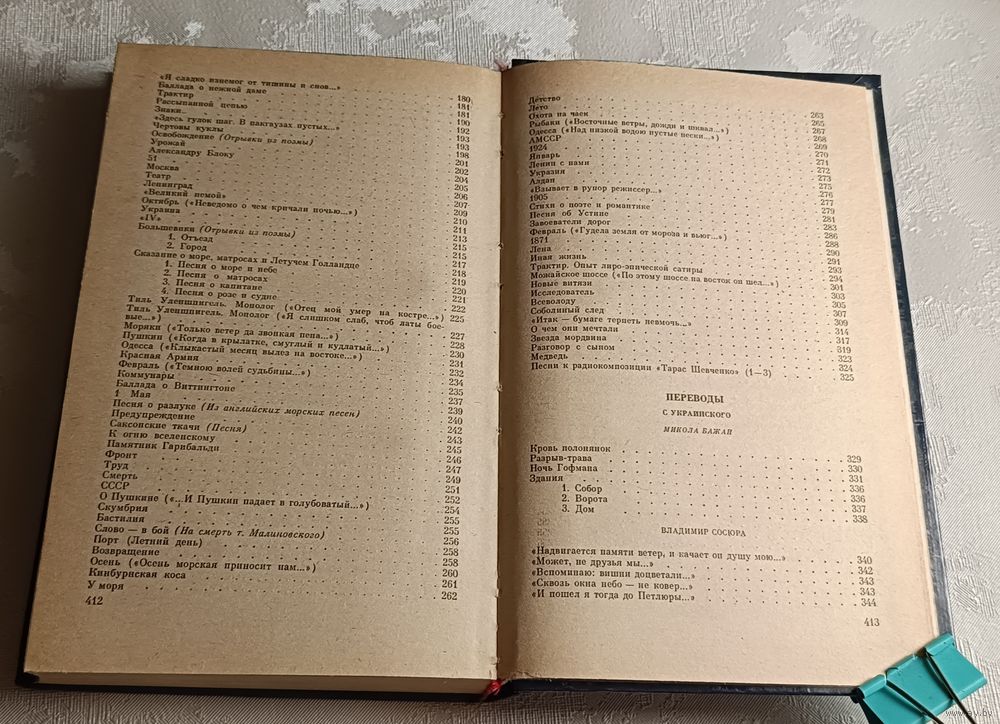 «Я сладко изнемог от тишины и снов...» 180
Баллада о нежной даме 181
Трактир 181
Рассыпанной цепью 190
Знаки 192
«Здесь гулок шаг. В пакгаузах пустых...» 193
Чертовы куклы 193
Освобождение (Отрывки из поэмы) 198
Урожай 201
Александру Блоку 202
51 204
Москва 205
Театр 206
Ленинград 207
«Великий немой» 209
Октябрь («Неведомо о чем кричали ночью...») 210
Украина 211
«IV» 213
Большевики (Отрывки из поэмы) 215
1. Отъезд 215
2. Город 217
Сказание о море, матросах и Летучем Голландце 218
1. Песня о море и небе 219
2. Песня о матросах 220
3. Песня о капитане 221
4. Песня о розе и судне 222
Тиль Уленшпигель. Монолог («Отец мой умер на костре...») 225
Тиль Уленшпигель. Монолог («Я слишком слаб, чтоб латы бое-
вые...») 227
Моряки («Только ветер да звонкая пена...») 228
Пушкин («Когда в крылатке, смуглый и кудлатый...») 230
Одесса («Клыкастый месяц вылез на востоке...») 231
Красная Армия 232
Февраль («Темною волей судьбины...») 234
Коммунары 235
Баллада о Виттингтоне 237
1 Мая 239
Песня о разлуке (Из английских морских песен) 240
Предупреждение 242
Саксонские ткачи (Песня) 243
К огню вселенскому 245
Памятник Гарибальди 246
Фронт 247
Труд 249
Смерть 251
СССР 252
О Пушкине («...И Пушкин падает в голубоватый...») 254
Скумбрия 255
Бастилия 255
Слово — в бой (На смерть т. Малиновского) 256
Порт (Летний день) 258
Возвращение 258
Осень («Осень морская приносит нам...») 260
Кинбурнская коса 261
У моря 262
412
Детство 263
Лето 265
Охота на чаек 267
Рыбаки («Восточные ветры, дожди и шквал...») 268
Одесса («Над низкой водою пустые пески...») 269
АМССР 270
1924 271
Январь 272
Ленин с нами 273
Укразия 275
Алдан 276
«Взывает в рупор режиссер...» 277
1905 279
Стихи о поэте и романтике 281
Песня об Устине 283
Завоеватели дорог 286
Февраль («Гудела земля от мороза и вьюг...») 288
1871 290
Лена 291
Иная жизнь 293
Трактир. Опыт лиро-эпической сатиры 294
Можайское шоссе («По этому шоссе на восток он шел...») 301
Новые витязи 303
Исследователь 305
Всеволоду 307
Соболиный след 309
«Итак — бумаге терпеть невмочь...» 314
О чем они мечтали 317
Звезда мордвина 319
Разговор с сыном 323
Медведь 324
Песни к радиокомпозиции «Тарас Шевченко» (1—3) 325
ПЕРЕВОДЫ
С УКРАИНСКОГО
МИКОЛА БАЖАН
Кровь полонянок 329
Разрыв-трава 330
Ночь Гофмана 331
Здания 336
1. Собор 336
2. Ворота 337
3. Дом 338
ВЛАДИМИР СОСЮРА
«Надвигается памяти ветер, и качает он душу мою...» 340
«Может, не друзья мы...» 342
«Вспоминаю: вишни доцветали...» 343
«Сквозь окна небо — не ковер...» 343
«И пошел я тогда до Петлюры...» 344
413